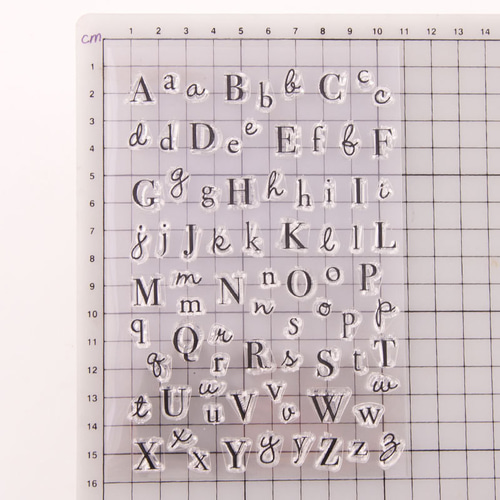 cm 1 2 3 4 5 6 7 8 9 10 11 12 13 14
1
2 A a a B b b C c c
3
4 d d D e e E f f F
5
6 G g g H h h i I i
7
8 j j J k k K l l L
9 M m m N n n O o o P
10
11 q Q r r R s s S p p t T
12 q
13
14 t U u u V v v W w w
15 X x x Y y y Z z z
16